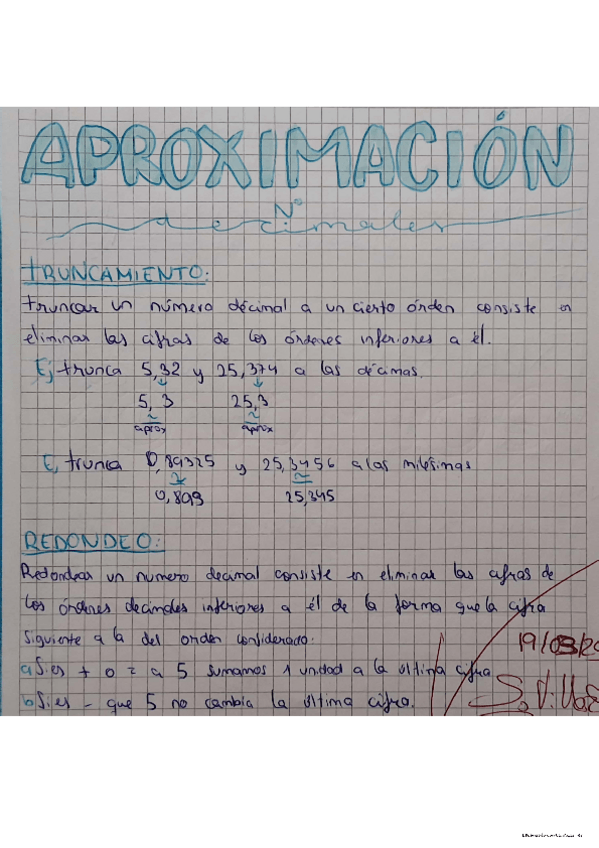 APROXIMACIÓN
Nº
decimales
TRUNCAMIENTO:
truncar un número décimal a un cierto órden consiste en
eliminar las cifras de los órdenes inferiores a él.
Ej trunca 5,32 y 25,374 a las décimas.
5,3 25,3
≃ ≃
aprox aprox
E, trunca 0,89325 y 25,3456 a las milésimas
≃ ≃
0,893 25,345
REDONDEO:
Redondear un numero decimal consiste en eliminar las cifras de
los órdenes decimales inferiores a él de la forma que la cifra
siguiente a la del orden considerado:
a) Si es + o = a 5 sumamos 1 unidad a la última cifra
b) Si es - que 5 no cambia la última cifra.
19/03/2